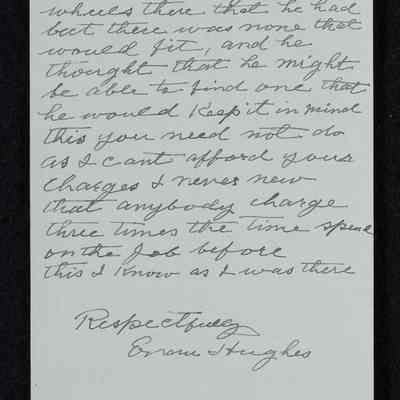 wheels there that he had
but there was none that
would fit, and he
thought that he might
be able to find one that
he would Keep it in mind
this you need not do
as I cant afford your
Charges I never new
that anybody charge
three times the time spend
on the Job before
this I Know as I was there
Respectfully
Hughes